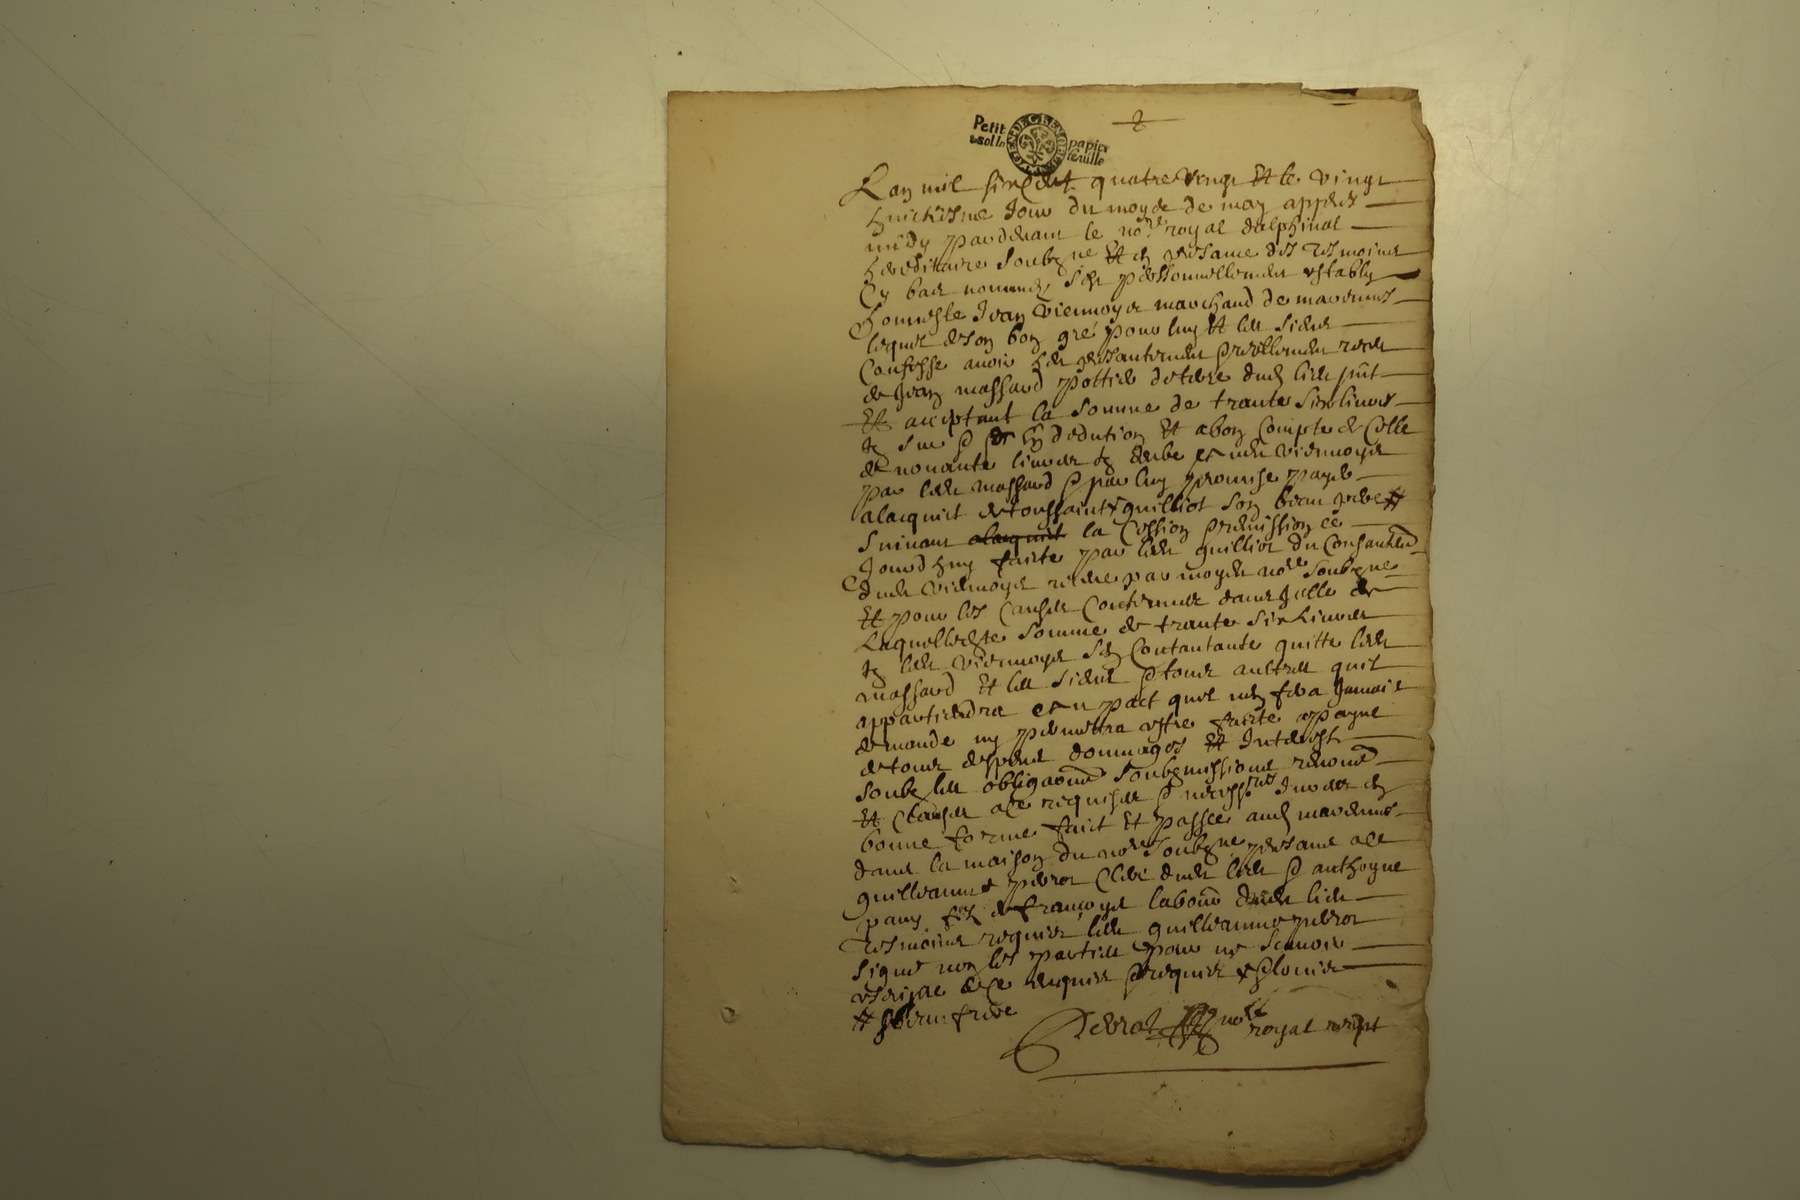 Petit papier
& sol la feuille
Lan mil six cent quatre vingt Et le vingt
huictiesme Jour du moys de may appres
midy pardevant le no.re royal dalphinal
hereditaire soubzne Et en presance des tesmoins
Cy bas nommes sest personnellement estably
honneste Jean Viennoys marchand de
lequel de son bon gré pour luy Et les siens
Confesse avoir heu presantement reellement receu
de Jean massard pottier de terre dud lieu pnt
Et acceptant la somme de trante six livres
Et abon Compte de Celle
de nonante livres viennoys
par led massard par luy promise payer
alacquict de toussaint quilliot son beau #
suivant alacquict la Cession remission ce
Jourdhuy faicte par led quilliot du Consantem
dud viennoys receue par moyd no.re soubzne
Et pour les Causes Contenues dans Jcelle de
Laquelle somme de trante six Livres
led viennoys sen Contantante quitte led
massard Et les siens tous aultres quil
appartiendra pact quil nen fera Jamais
demande ny permettra estre faicte apeyne
de tous despens dommages Et Interest
soubz les obligaons soubzmissions renonc
Et Clauses ace requises necess.res Jurees en
bonne forme faict Et passee aud
dans la maison du no.re soubzne presans ace
guilleaume perrot Clerc dud lieu anthoyne
pany filz de françoys labour dud lieu
Tesmoins requis led guilleaume perrot
signé non les parties pour ne scavoir
escripre de ce enquis requis
# frere
Perrot no.re royal